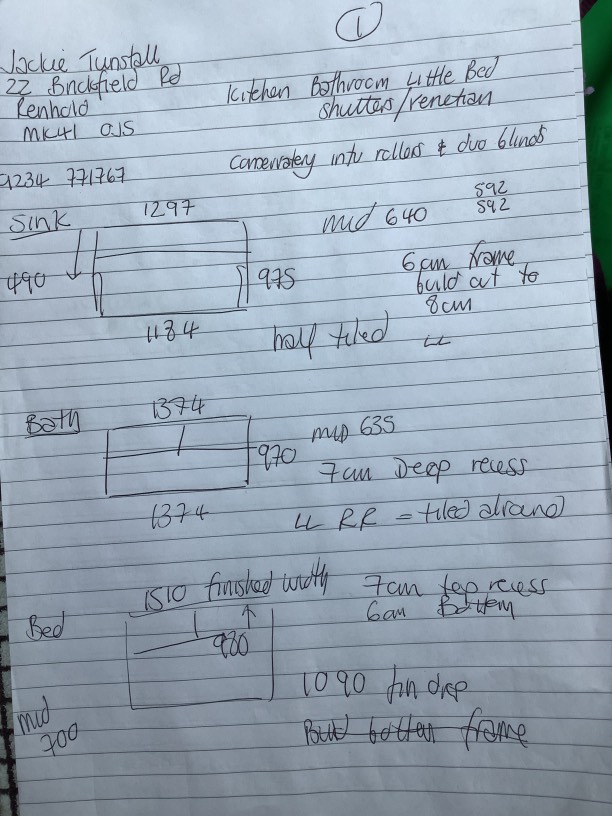 1
Jackie Tunstall
22 Brickfield Rd
Renhold
MK41 0JS
Kitchen Bathroom Little Bed
shutters/venetian
Conservatory intu rollers & duo blinds
01234 771767
Sink
1297
mid 640
592
592
490
975
6cm frame
build out to
8cm
1184
half tiled
LL
Bath
1374
mid 635
970
7cm Deep recess
1374
LL RR = tiled around
1510 finished width
7cm top recess
6cm Bottom
Bed
980
1090 fin drop
mid
700
bottom frame